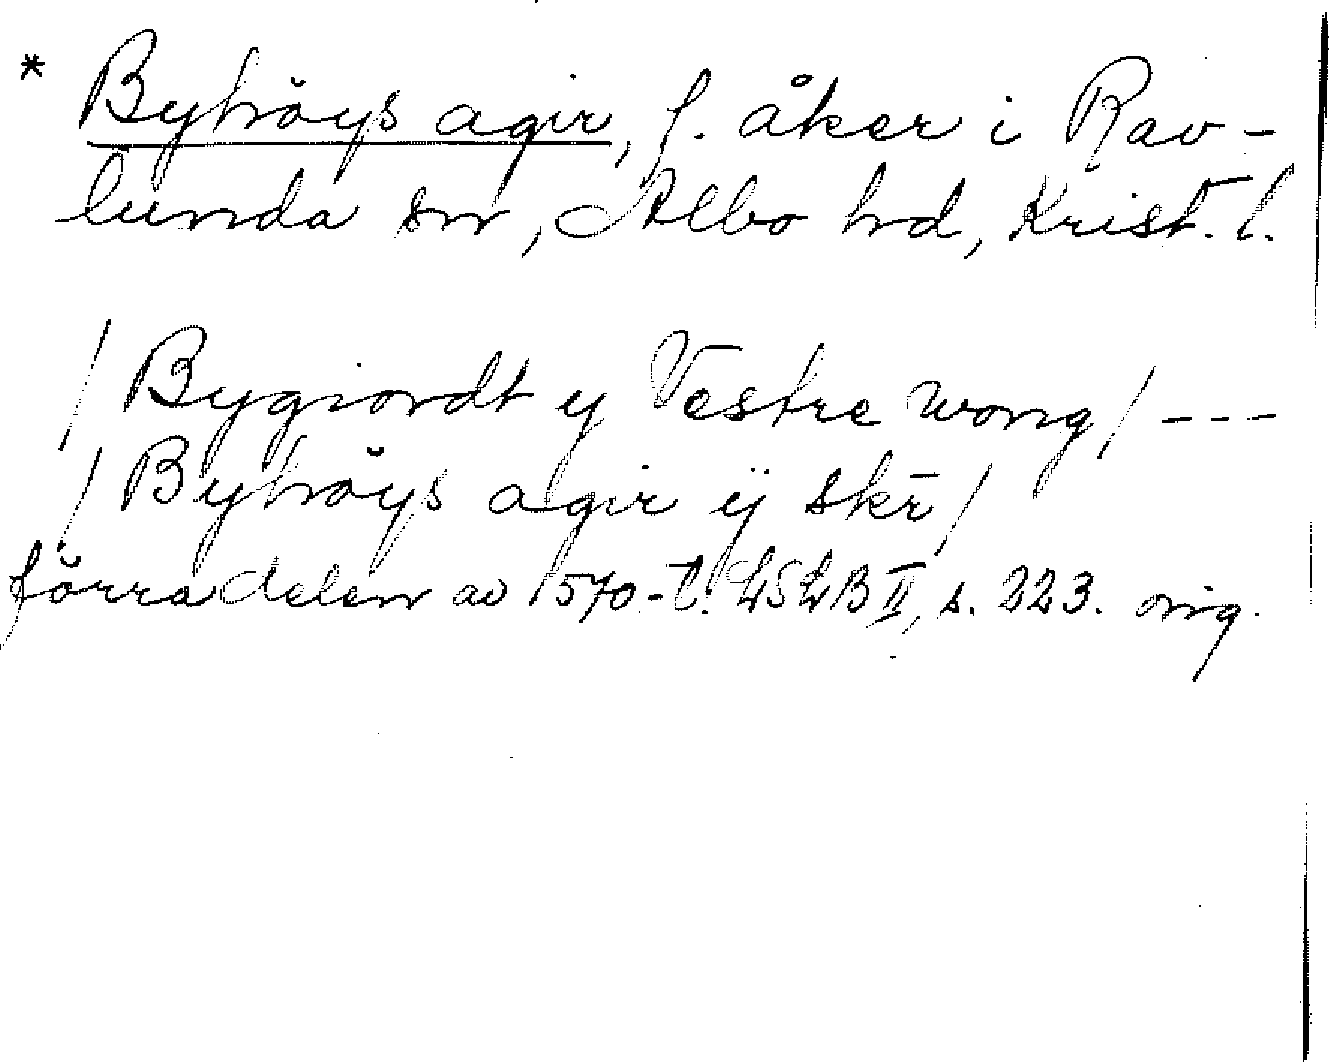 * Byhöys agir, f. åker i Rav-
lunda sn, Albo hd, Krist. l.
/ Bygiordt y Vestre wong / ---
/ Byhöys agir ij skr̄ /
förra delen av 1570-t. LSLB II, s. 223. orig.